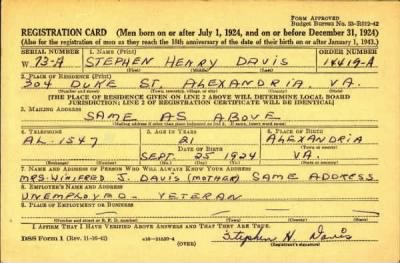 FORM APPROVED
Budget Bureau No. 33-R012-42
REGISTRATION CARD (Men born on or after July 1, 1924, and on or before December 31, 1924)
(Also for the registration of men as they reach the 18th anniversary of the date of their birth on or after January 1, 1943.)
SERIAL NUMBER 1. NAME (Print) ORDER NUMBER
W 73-A STEPHEN HENRY DAVIS 14419-A
2. PLACE OF RESIDENCE (Print)
304 DUKE ST. ALEXANDRIA VA.
(Number and street) (Town, township, village, or city) (County) (State)
[THE PLACE OF RESIDENCE GIVEN ON LINE 2 ABOVE WILL DETERMINE LOCAL BOARD
JURISDICTION; LINE 2 OF REGISTRATION CERTIFICATE WILL BE IDENTICAL]
3. MAILING ADDRESS
SAME AS ABOVE
[Mailing address if other than place indicated on line 2. If same, insert word same]
4. TELEPHONE 5. AGE IN YEARS 6. PLACE OF BIRTH
AL. 1547 21 ALEXANDRIA
DATE OF BIRTH
SEPT. 25 1924 VA.
(Exchange) (Number) (Mo.) (Day) (Yr.) (State or country)
7. NAME AND ADDRESS OF PERSON WHO WILL ALWAYS KNOW YOUR ADDRESS
MRS. WINIFRED J. DAVIS (MOTHER) SAME ADDRESS
8. EMPLOYER'S NAME AND ADDRESS
UNEMPLOYED - VETERAN
9. PLACE OF EMPLOYMENT OR BUSINESS
(Number and street or R. F. D. number) (Town) (County) (State)
I AFFIRM THAT I HAVE VERIFIED ABOVE ANSWERS AND THAT THEY ARE TRUE.
DSS Form 1 (Rev. 11-16-42) (OVER) Stephen H. Davis
(Registrant's signature)